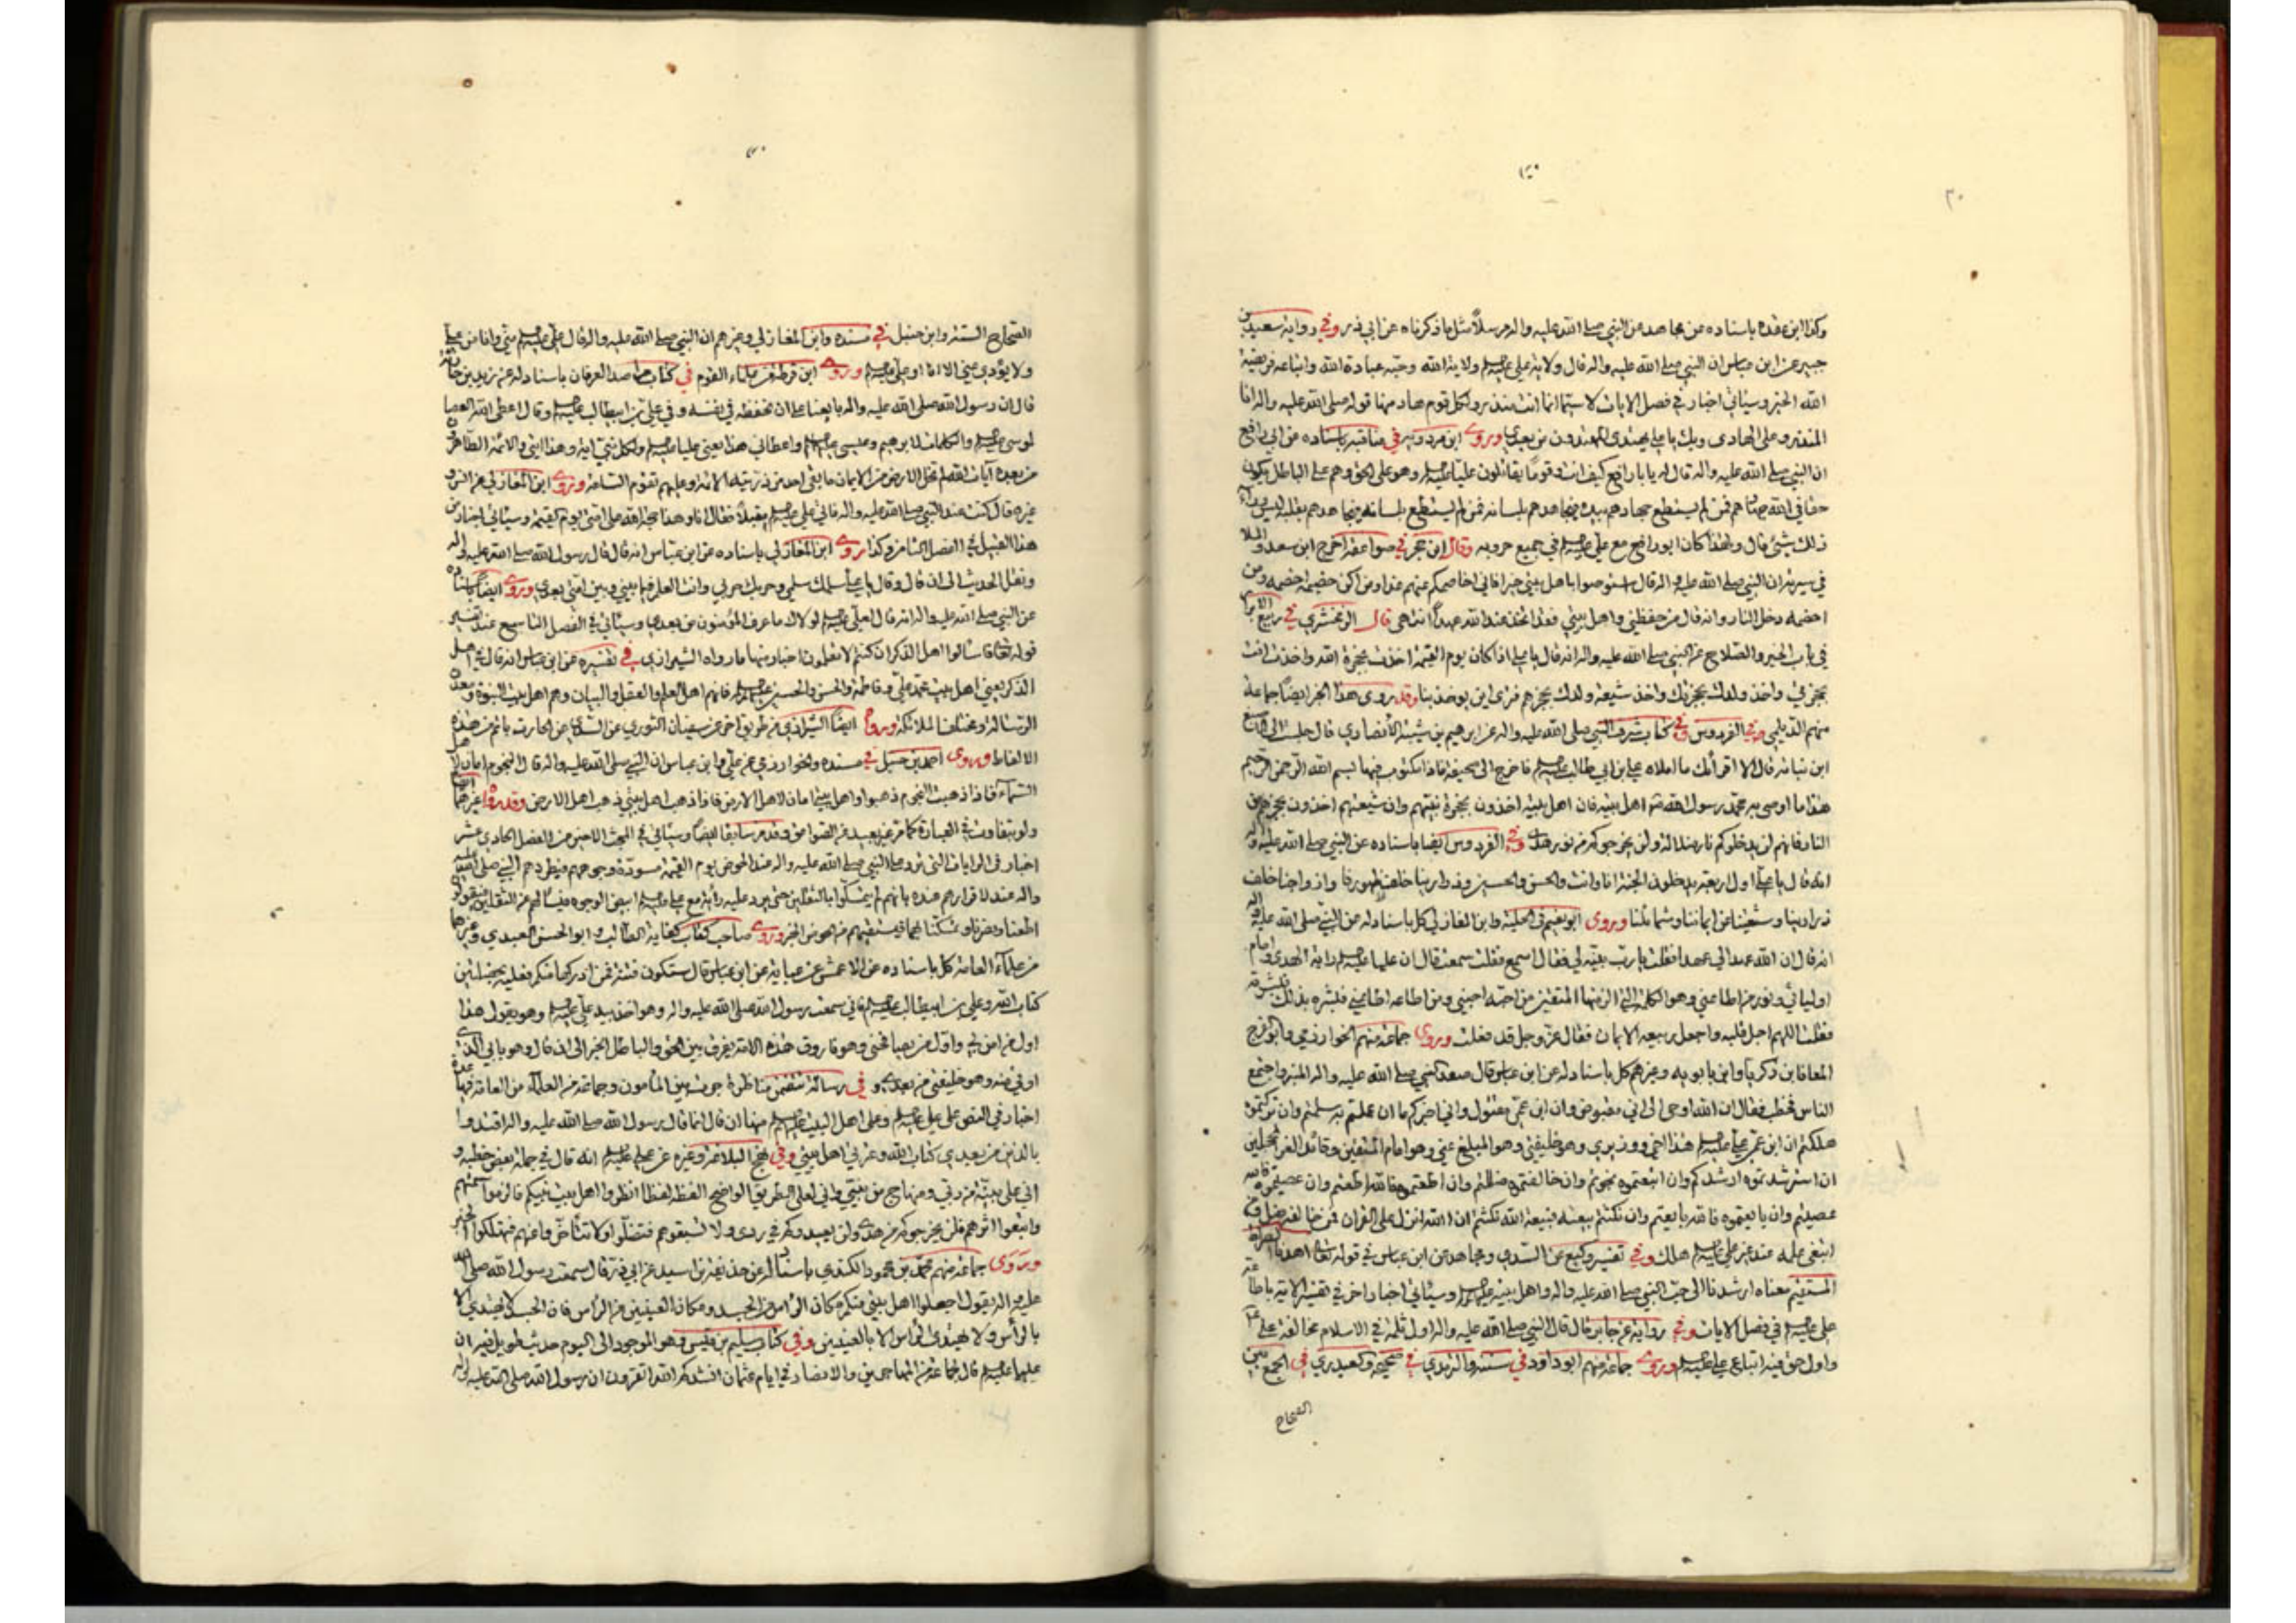 ٣٠
وكذا ابن عقده باسناده عن مجاهد عن النبي صلى الله عليه واله مرسلاً مثل ما ذكرناه عن ابي ذر وفي رواية سعيد بن
جبير عن ابن عباس ان النبي صلى الله عليه واله قال ولاية علي ولاية الله وحبه عبادة الله واتباعه فريضة
الله الخبر وسيأتي اخبار في فصل الايات لا سيما انما انت منذر ولكل قوم هاد منها قوله صلى الله عليه واله انا
المنذر وعلي الهادي وبك يا علي يهتدي المهتدون من بعدي وروى ابن مردويه في مناقبه باسناده عن ابي رافع
ان النبي صلى الله عليه واله قال له يا با رافع كيف انت وقوما يقاتلون علياً وهو على الحق وهم على الباطل يكون
حقا في الله جهادهم فمن لم يستطع جهادهم بيده فيجاهدهم بلسانه فمن لم يستطع بلسانه فيجاهدهم بقلبه ليس وراء
ذلك شئ قال ولهذا كان ابو رافع مع علي في جميع حروبه وقال ابن حجر في صواعقه اخرج ابن سعد والملا
في سيرته ان النبي صلى الله عليه واله قال استوصوا باهل بيتي خيرا فاني اخاصمكم عنهم غدا ومن اكن خصمه اخصمه ومن
اخصمه دخل النار وانه قال من حفظني واهل بيتي فقد اتخذ عند الله عهداً انتهى قال الزمخشري في ربيع الابرار
في باب الخير والصلاح عن النبي صلى الله عليه واله انه قال يا علي اذا كان يوم القيمة اخذت بحجزة الله واخذت انت
بحجزتي واخذ ولدك بحجزتك واخذ شيعة ولدك بحجزهم فترى اين يؤخذ بنا وقد روى هذا الخبر ايضاً جماعة
منهم الديلمي في الفردوس وفي كتاب شرف النبي صلى الله عليه واله عن ابرهيم بن شيبة الأنصاري قال جلست الى الاصبغ
ابن نباته قال الا اقرأك ما املاه علي ابن ابي طالب فاخرج الي صحيفة فاذا مكتوب فيها بسم الله الرحمن الرحيم
هذا ما اوصى به محمد رسول الله اهل بيته فان اهل بيته اخذون بحجزة نبيهم وان شيعتهم اخذون بحجزهم
النار فانهم لن يدخلوكم باب ضلالة ولن يخرجوكم من نور هدى وفي الفردوس ايضا باسناده عن النبي صلى الله عليه واله
انه قال يا علي اول اربعة يدخلون الجنة انا وانت والحسن والحسين وذرارينا خلف ظهورنا وازواجنا خلف
ذرارينا وشيعتنا عن ايماننا وشمائلنا وروى ابو نعيم في الحلية وابن المغازلي كل باسناد له عن النبي صلى الله عليه واله
انه قال ان الله عهد الي عهدا فقلت يا رب بينه لي فقال اسمع فقلت سمعت قال ان عليا راية الهدى وامام
اوليائي ونور من اطاعني وهو الكلمة التي الزمتها المتقين من احبه احبني ومن اطاعه اطاعني فبشره بذلك فبشرته
فقلت اللهم اجل قلبه واجعل ربيعه الايمان فقال عز وجل قد فعلت وروى جماعة منهم الخوارزمي وابو الفرج
المعافا بن زكريا وابن بابويه وغيرهم كل باسناد له عن ابن عباس قال صعد النبي صلى الله عليه واله المنبر واجتمع
الناس فخطب فقال ان الله اوحى الي اني مقبوض وان ابن عمي مقتول واني اخبركم ما ان عملتم به سلمتم وان تركتموه
هلكتم ان ابن عمي علياً هذا اخي ووزيري وهو خليفتي وهو المبلغ عني وهو امام المتقين وقائد الغر المحجلين
ان استرشدتموه ارشدكم وان اتبعتموه نجوتم وان خالفتموه ضللتم وان اطعتموه فالله اطعتم وان عصيتموه فالله
عصيتم وان بايعتموه فالله بايعتم وان نكثتم بيعته فبيعة الله نكثتم ان الله انزل علي القران فمن خالفه ضل ومن
ابتغى علمه عند غير علي هلك وفي تفسير وكيع عن السدي ومجاهد عن ابن عباس في قوله تعالى اهدنا الصراط
المستقيم معناه ارشدنا الى حب النبي صلى الله عليه واله واهل بيته وسيأتي اخبار اخر في تفسير الاية
علي في فصل الايات وفي رواية عن جابر قال قال النبي صلى الله عليه واله اول ثلمة في الاسلام مخالفة علي
واول حق فيه اتباع علي وروى جماعة منهم ابو داود في سننه والترمذي في صحيحه والعبدري في الجمع بين
الصحاح
الصحاح الستة وابن حنبل في مسنده وابن المغازلي وغيرهم ان النبي صلى الله عليه واله قال علي مني وانا من علي
ولا يؤدي عني الا انا او علي وروى ابن قرطة من علماء القوم في كتاب مراصد العرفان باسناد له عن زيد بن حارثة
قال ان رسول الله صلى الله عليه واله بايعنا على ان نحفظه في نفسه وفي علي بن ابيطالب وقال اعطى الله العصا
لموسى والكلمات لابرهيم وعيسى واعطاني هذا يعني عليا ولكل نبي اية وهذا ايتي والائمة الطاهرون
من بعده آيات الله لم تخل الارض من الايمان ما بقي احد من ذريته لا وعليهم تقوم الساعة وروى ابن المغازلي عن انس
غيره قال كنت عند النبي صلى الله عليه واله فاتى علي مقبلاً فقال انا وهذا حجة الله على امتي يوم القيمة وسيأتي اخبار من
هذا القبيل في الفصل الثامن وكذا روى ابن المغازلي باسناده عن ابن عباس انه قال قال رسول الله صلى الله عليه واله
ونقل الحديث الى ان قال وقال يا علي سلمك سلمي وحربك حربي وانت العلم فيما بيني وبين امتي بعدي وروى ايضاً باسناده
عن النبي صلى الله عليه واله انه قال لعلي لولاك ما عرف المؤمنون من بعدي وسيأتي في الفصل التاسع عند تفسير
قوله تعالى فاسالوا اهل الذكر ان كنتم لا تعلمون اخبار منها ما رواه الشيرازي في تفسيره عن ابن عباس انه قال في اهل
الذكر يعني اهل بيت محمد علي وفاطمة والحسن والحسين فانهم اهل العلم والعقل والبيان وهم اهل بيت النبوة ومعدن
الرسالة ومختلف الملائكة وروى ايضاً الشيرازي من طريق اخر عن سفيان الثوري عن السدي عن الحارث باتم من هذه
الالفاظ وروى احمد بن حنبل في مسنده والخوارزمي عن علي وابن عباس ان النبي صلى الله عليه واله قال النجوم امان لاهل
السماء فاذا ذهبت النجوم ذهبوا واهل بيتي امان لاهل الارض فاذا ذهب اهل بيتي ذهب اهل الارض وقد رواه غيرهما
ولو بتفاوت في العبارة كما مر غير بعيد من الصواعق وقد مر سابقا ايضاً وسيأتي في المبحث الاخير من الفصل الحادي عشر
اخبار في الرايات التي ترد على النبي صلى الله عليه واله عند الحوض يوم القيمة مسودة وجوههم فيطردهم النبي صلى الله عليه
واله عند اقرارهم عنده بانهم لم يتمسكوا بالثقلين حتى يرد عليه راية مع علي ابيض الوجوه فيسألهم عن الثقلين فيقولون
اطعنا ونصرنا وتمسكنا بهما فيسقيهم من الحوض الخبر وروى صاحب كتاب كفاية الطالب وابو الحسن العبدي وغيرهما
من علماء العامة كل باسناده عن الاعمش عن عباية عن ابن عباس قال ستكون فتنة فمن ادركها منكم فعليه بخصلتين
كتاب الله وعلي بن ابيطالب فاني سمعت رسول الله صلى الله عليه واله وهو اخذ بيد علي وهو يقول هذا
اول من امن بي واول من يصافحني وهو فاروق هذه الامة يفرق بين الحق والباطل الخبر الى ان قال وهو بابي الذي
اوتى منه وهو خليفتي من بعدي وفي رسالة تتضمن مناظرة جرت بين المأمون وجماعة من العلماء من العامة فيها عدة
اخبار في النص على علي وعلى اهل البيت منها ان قال انما قال رسول الله صلى الله عليه واله اقتدوا
بالذين من بعدي كتاب الله وعترتي اهل بيتي وفي نهج البلاغة وغيره عن علي انه قال في جملة بعض خطبه
اني على بينة من ربي ومنهاج من نبيي واني لعلى الطريق الواضح القطه لقطا انظروا اهل بيت نبيكم فالزموا سمتهم
واتبعوا اثرهم فلن يخرجوكم من هدى ولن يعيدوكم في ردى ولا تسبقوهم فتضلوا ولا تتأخروا عنهم فتهلكوا الخبر
وروى جماعة منهم محمد بن محمود الكندي باسناد له عن حذيفة بن اسيد عن ابي ذر قال سمعت رسول الله صلى الله
عليه واله يقول اجعلوا اهل بيتي منكم مكان الرأس من الجسد ومكان العينين من الرأس فان الجسد لا يهتدي الا
بالرأس ولا يهتدي الرأس الا بالعينين وفي كتاب سليم بن قيس وهو الموجود الى اليوم حديث طويل فيه ان
عليا قال لجماعة من المهاجرين والانصار في ايام عثمان انشدكم الله اتقرون ان رسول الله صلى الله عليه واله